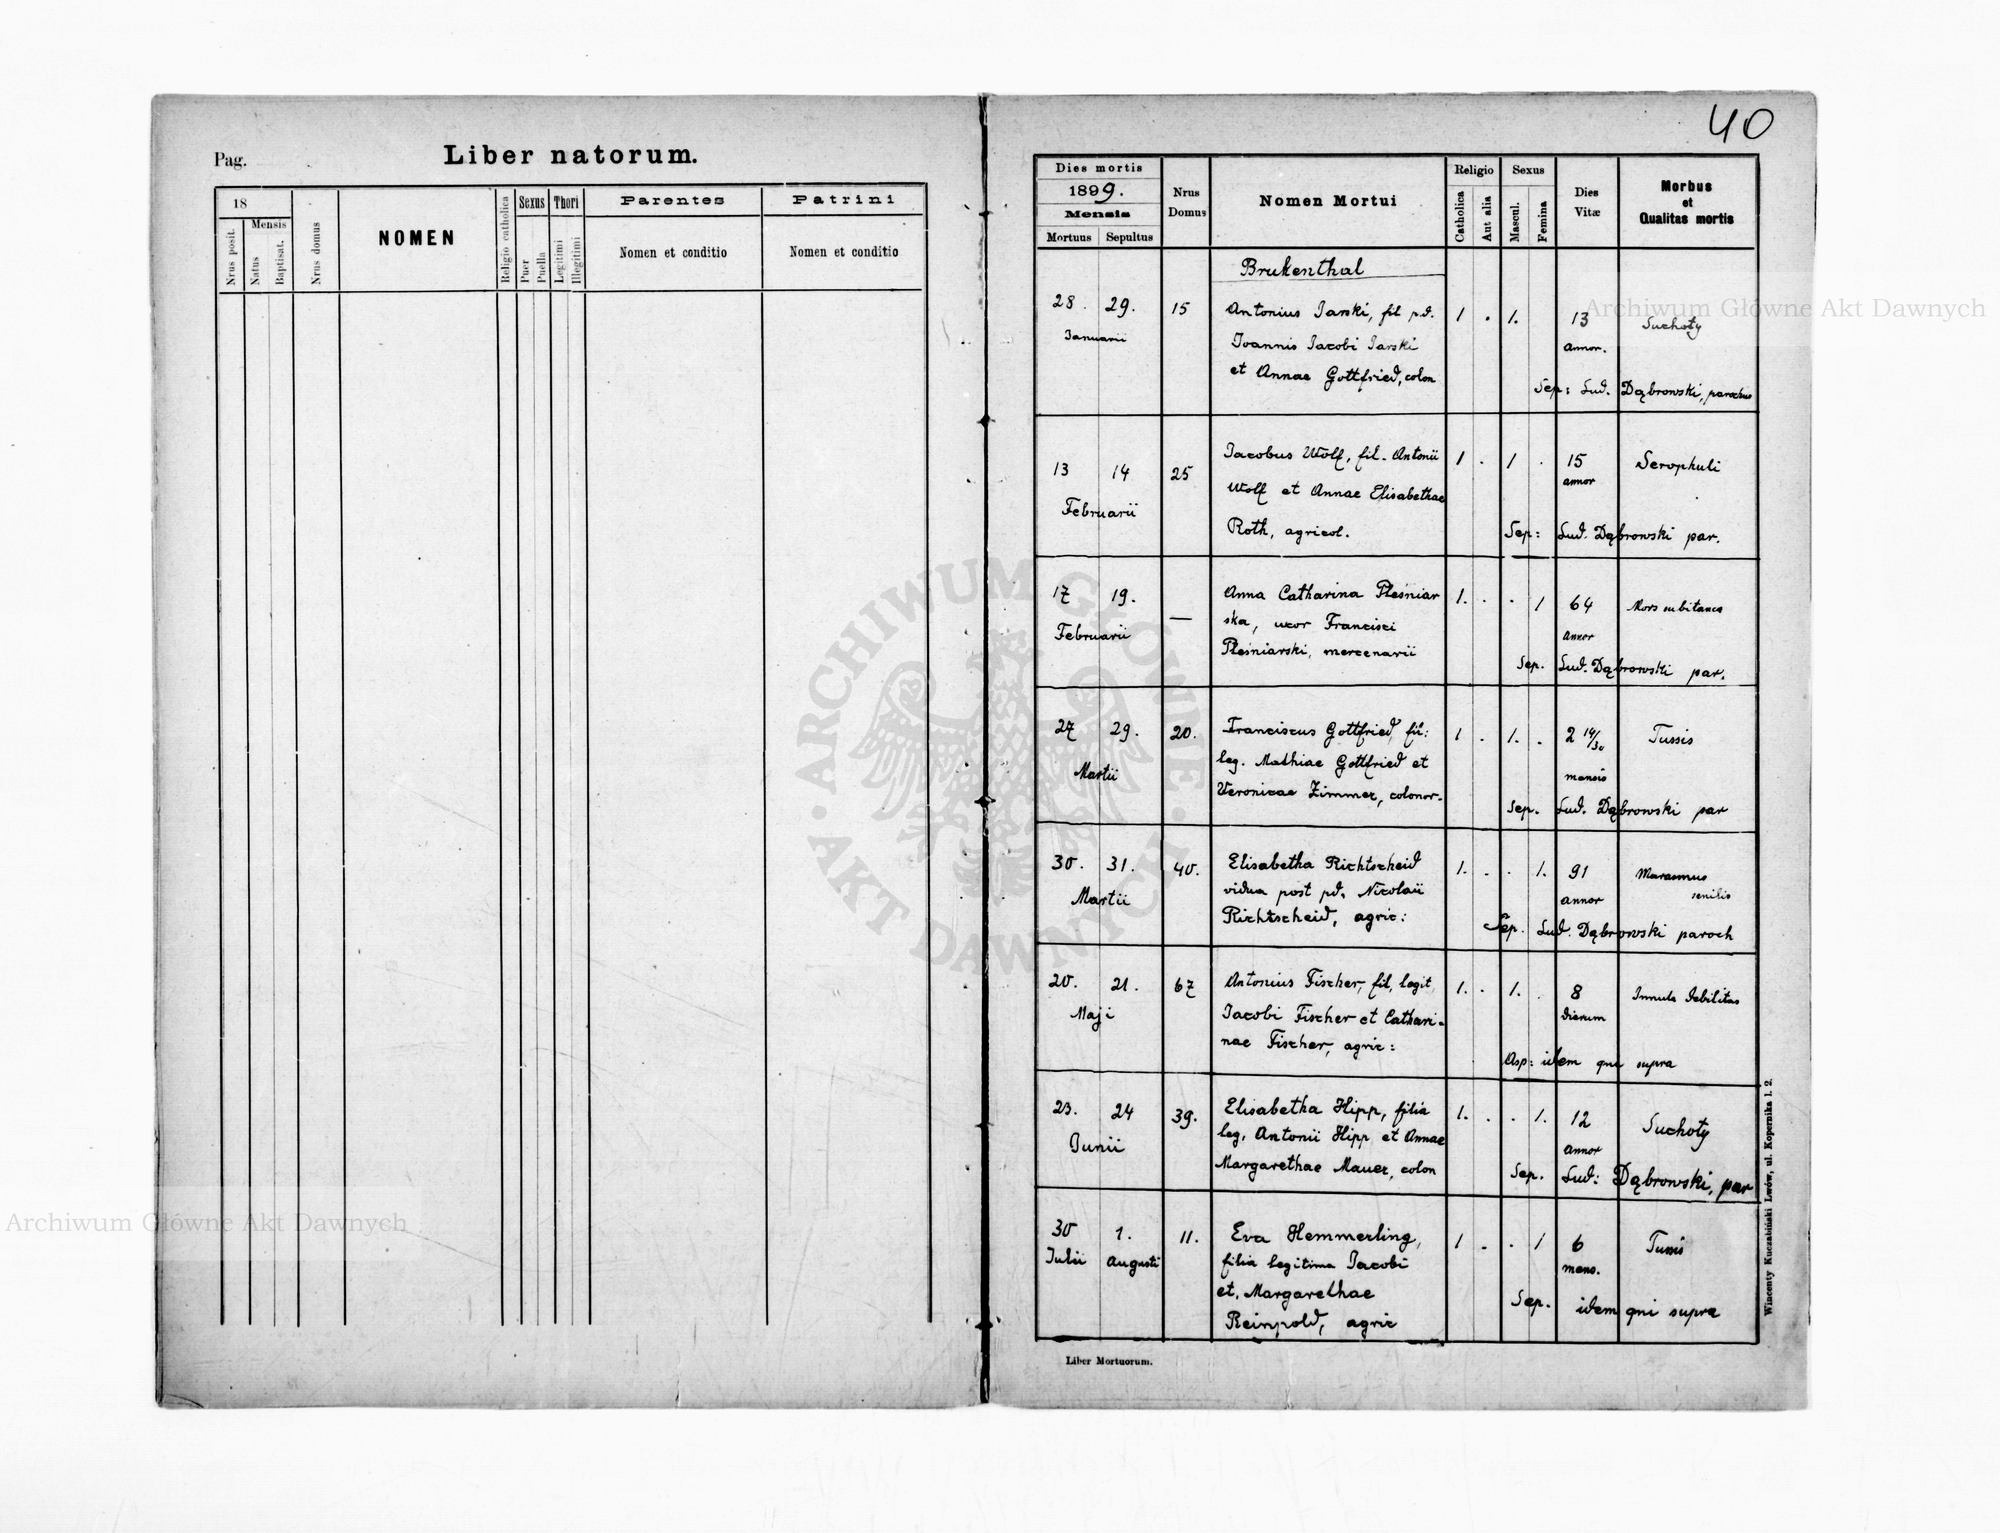 40
Pag.
Liber natorum.
18
Mensis
Nrus posit.
Natus
Baptisat.
Nrus domus
NOMEN
Religio catholica
Sexus
Puer
Puella
Thori
Legitimi
Illegitimi
Parentes
Nomen et conditio
Patrini
Nomen et conditio
Dies mortis
1899.
Mensis
Mortuus Sepultus
Nrus Domus
Nomen Mortui
Religio
Catholica
Aut alia
Sexus
Mascul.
Femina
Dies Vitæ
Morbus
et
Qualitas mortis
Brukenthal
28. 29. 15 Antonius Jarski, fil p.d. 1 . 1. 13 Suchoty
Januarii Joannis Jacobi Jarski annor.
et Annae Gottfried, colon Sep: Lud. Dąbrowski, parochus
13 14 25 Jacobus Wolf, fil. Antonii 1 . 1 . 15 Scrophuli
Februarii Wolf et Annae Elisabethae annor
Roth, agricol. Sep: Lud. Dąbrowski par.
17 19. — Anna Catharina Pleśniar 1. . . 1 64 Mors subitanea
Februarii ska, uxor Francisci annor
Pleśniarski, mercenarii Sep. Lud. Dąbrowski par.
27 29. 20. Franciscus Gottfried, fil: 1 . 1. . 2 14/30 Tussis
Martii leg. Mathiae Gottfried et mensis
Veronicae Zimmer, colonor. Sep. Lud. Dąbrowski par
30. 31. 40. Elisabetha Richtscheid 1. . . 1. 91 Marasmus
Martii vidua post pd. Nicolaii annor senilis
Richtscheid, agric: Sep. Lud. Dąbrowski paroch
20. 21. 67 Antonius Fischer, fil, legit, 1. . 1. . 8 Innata debilitas
Maji Jacobi Fischer et Cathari- dierum
nae Fischer, agric: Asp: idem qui supra
23. 24 39. Elisabetha Hipp, filia 1. . . 1. 12 Suchoty
Junii leg. Antonii Hipp et Annae annor
Margarethae Mauer, colon Sep. Lud: Dąbrowski, par
30 1. 11. Eva Hemmerling, 1 . . 1 6 Tussis
Julii Augusti filia legitima Jacobi mens.
et. Margarethae Sep. idem qui supra
Reinpold, agric
Liber Mortuorum.
Wincenty Kuczabiński Lwów, ul. Kopernika l. 2.
Archiwum Główne Akt Dawnych
Archiwum Główne Akt Dawnych
ARCHIWUM GŁÓWNE · AKT DAWNYCH ·